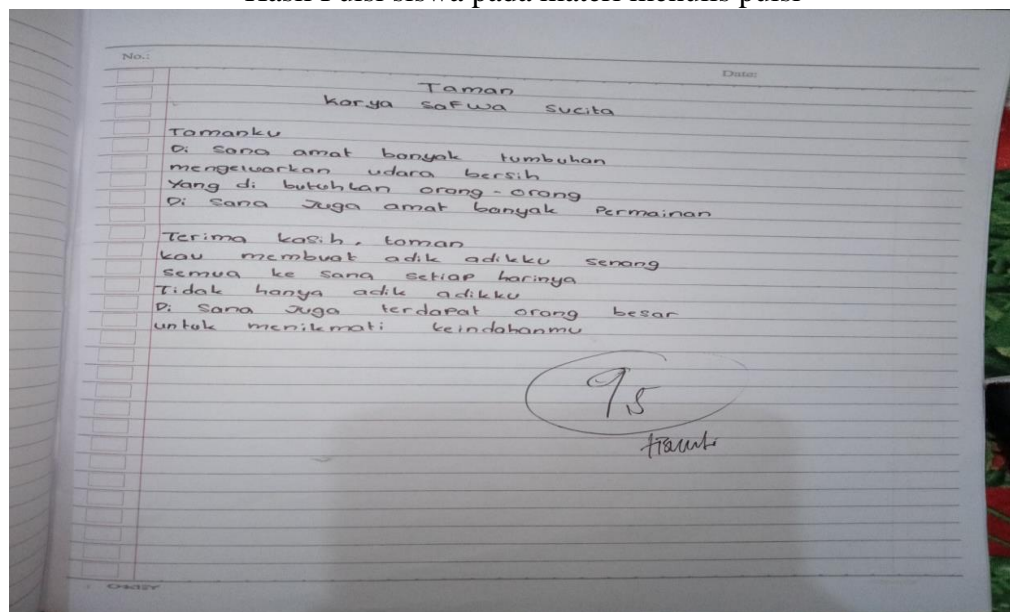 Hasil Puisi siswa pada materi menulis puisi
No.:
Date:
Taman
Karya Safwa Sucita
Tamanku
Di sana amat banyak tumbuhan
mengeluarkan udara bersih
Yang di butuhkan orang-orang
Di sana Juga amat banyak Permainan
Terima kasih, taman
kau membuat adik adikku senang
semua ke sana setiap harinya
Tidak hanya adik adikku
Di sana Juga terdapat orang besar
untuk menikmati keindahanmu
95